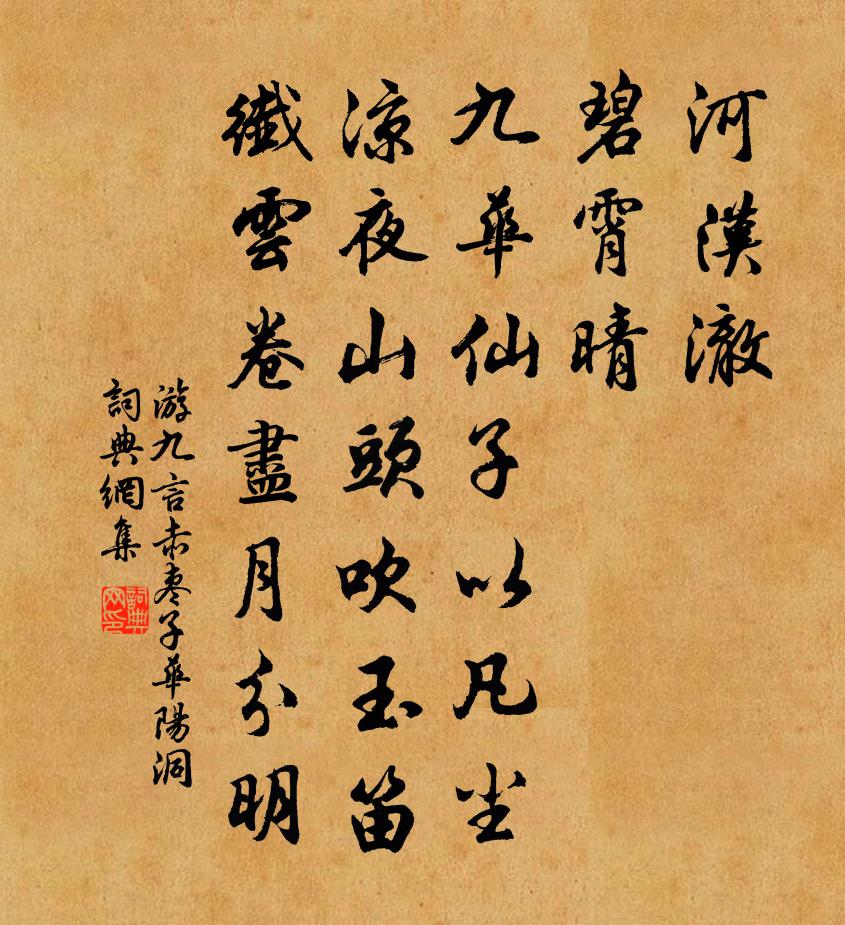 河漢澈
碧霄晴
九華仙子以凡尘
凉夜山頭吹玉笛
纖雲卷盡月分明
游九言赤枣子華陽洞
詞典網集
詞典
网印